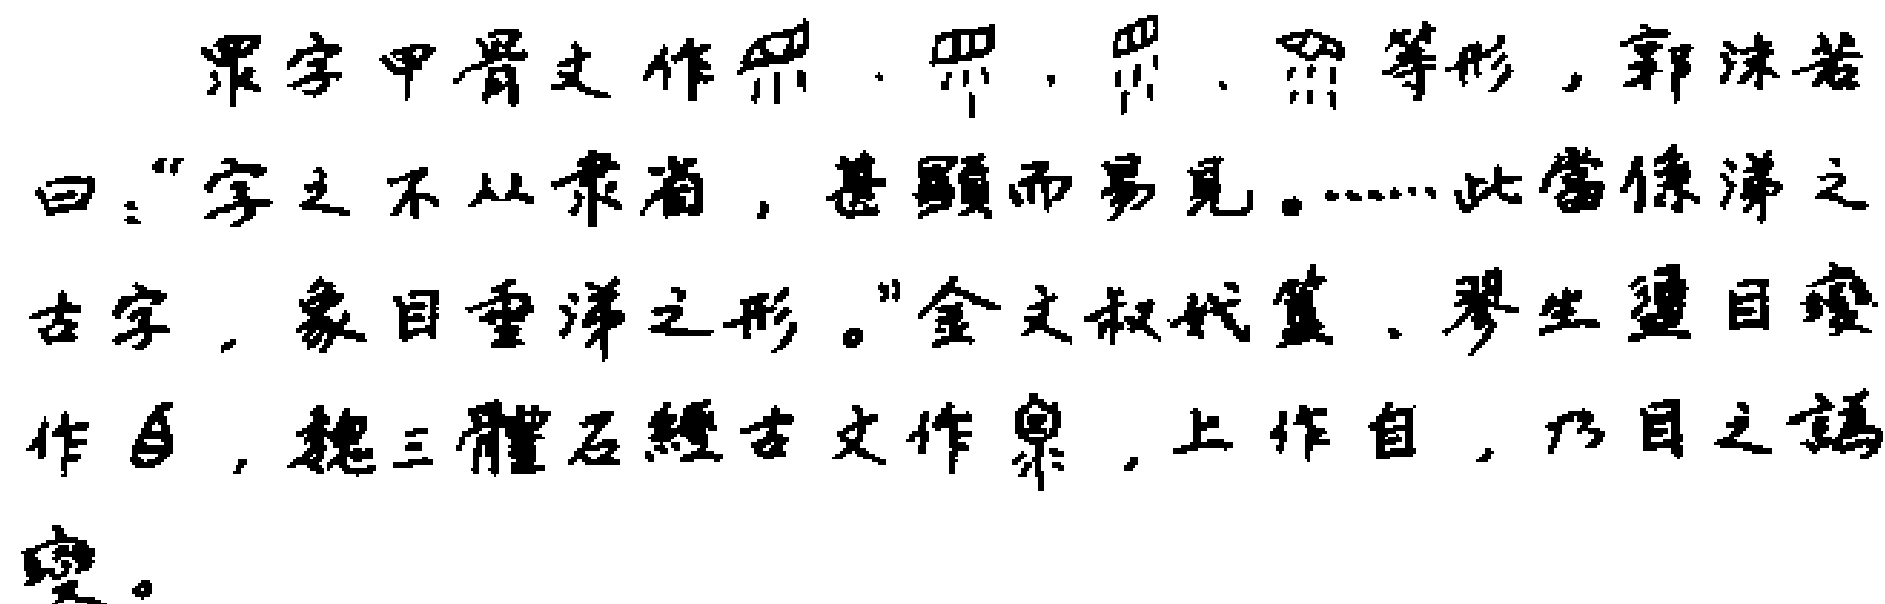 眔字甲骨文作、、、等形，郭沫若
曰：“字之不从隶省，甚顯而易見。……此當係涕之
古字，象目垂涕之形。”金文叔𤞷簋、翏生盨目變
作，魏三體石經古文作，上作自，乃目之譌
變。